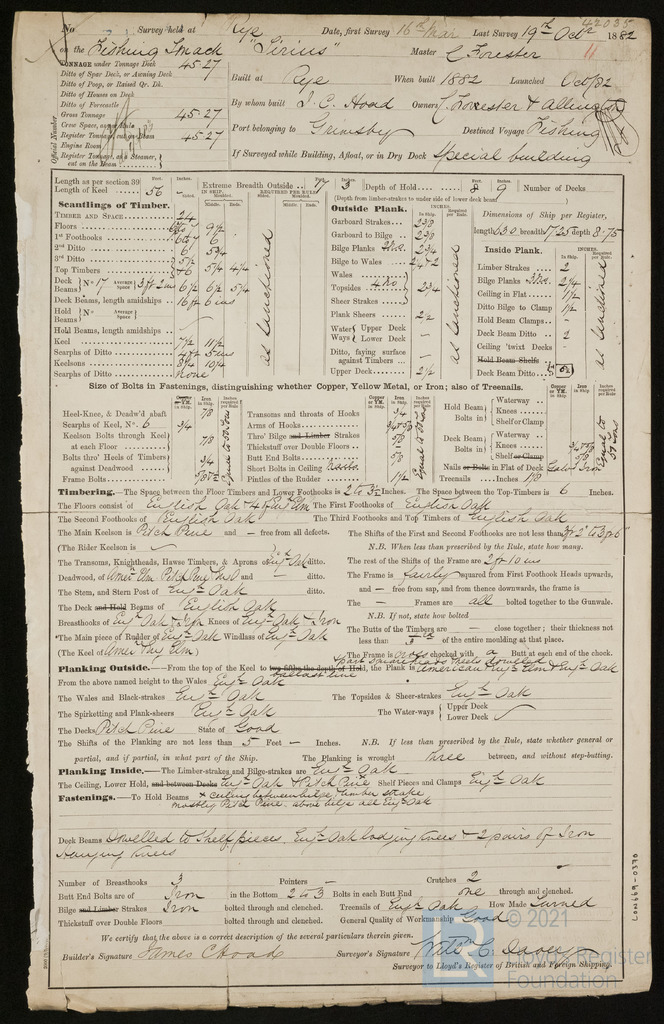 No Survey held at Rye Date, first Survey 16th Mar Last Survey 19th Octr 1882
42035
on the Fishing Smack "Sirius" Master C Forester
11
TONNAGE under Tonnage Deck 45.27
Ditto of Spar Deck, or Awning Deck
Ditto of Poop, or Raised Qr. Dk.
Ditto of Houses on Deck
Ditto of Forecastle
Gross Tonnage 45.27
Register Tonnage 45.27
Engine Room
Register Tonnage, as a Steamer, cut on the Beam
Official Number
Built at Rye When built 1882 Launched Oct/82
By whom built J. C. Hoad Owners C Forrester & Allington
Port belonging to Grimsby Destined Voyage Fishing
If Surveyed while Building, Afloat, or in Dry Dock Special building
Length as per section 39
Length of Keel 56
Extreme Breadth Outside 17 3
Depth of Hold 8 9 Number of Decks
(Depth from limber-strakes to under side of lower deck beam)
Scantlings of Timber.
TIMBER AND SPACE
Floors 9½
1st Foothooks 6
2nd Ditto 5¾
3rd Ditto
Top Timbers 5¼ 4¼
Deck Beams No 17 Average Space 3ft 2ins 6½ 6½ 5¼
Deck Beams, length amidships 16ft 6ins
Hold Beams No Average Space
Hold Beams, length amidships
Keel 7½ 11½
Scarphs of Ditto 4ft 5ins
Keelsons 8¼ 10¼
Scarphs of Ditto None
as sanctioned
Outside Plank.
Garboard Strakes
Garboard to Bilge
Bilge Planks 2 No. 2¾
Bilge to Wales
Wales
Topsides 4 No. 2¾
Sheer Strakes
Plank Sheers 2½
Water Ways Upper Deck
Lower Deck
Ditto, faying surface against Timbers
Upper Deck 2½
as sanctioned
Dimensions of Ship per Register,
length 63.0 breadth 17.25 depth 8.75
Inside Plank.
Limber Strakes 2
Bilge Planks 3 No. 2¼
Ceiling in Flat 1½
Ditto Bilge to Clamp 1½
Hold Beam Clamps -
Deck Beam Ditto 2
Ceiling 'twixt Decks -
Hold Beam Shelfs
Deck Beam Ditto
as sanctioned
Size of Bolts in Fastenings, distinguishing whether Copper, Yellow Metal, or Iron; also of Treenails.
Heel-Knee, & Deadw'd abaft 7/8
Scarphs of Keel, No. 6 3/4
Keelson Bolts through Keel at each Floor 7/8
Bolts thro' Heels of Timbers against Deadwood 3/4
Frame Bolts
Transoms and throats of Hooks 3/4
Arms of Hooks
Thro' Bilge and Limber Strakes 5/8
Thickstuff over Double Floors
Butt End Bolts 5/8
Short Bolts in Ceiling
Pintles of the Rudder 1½
Hold Beam Bolts in Waterway
Knees
Shelf or Clamp
Deck Beam Bolts in Waterway
Knees
Shelf or Clamp
Nails or Bolts in Flat of Deck Galvd Iron
Treenails Inches 1 1/8
Timbering.—The Space between the Floor Timbers and Lower Foothooks is 2 to 3½ Inches. The Space between the Top-Timbers is 6 Inches.
The Floors consist of English Oak & 4 of Engl Elm The First Foothooks of English Oak
The Second Foothooks of English Oak The Third Foothooks and Top Timbers of English Oak
The Main Keelson is Pitch Pine and - free from all defects. The Shifts of the First and Second Foothooks are not less than 3ft 2" to 3ft 6"
(The Rider Keelson is N.B. When less than prescribed by the Rule, state how many.
The Transoms, Knightheads, Hawse Timbers, & Aprons of Engh Oak ditto. The rest of the Shifts of the Frame are 2 ft 10 ins
Deadwood, of Amern Elm Pitch Pine and - ditto. The Frame is fairly squared from First Foothook Heads upwards,
The Stem, and Stern Post of Engh Oak ditto. and - free from sap, and from thence downwards, the frame is
The Deck and Hold Beams of English Oak The - Frames are all bolted together to the Gunwale.
Breasthooks of Engh Oak & Iron Knees of Engh Oak & Iron N.B. If not, state how bolted
The Main piece of Rudder of Engh Oak Windlass of Engh Oak The Butts of the Timbers are - close together; their thickness not less than 1/3rd of the entire moulding at that place.
(The Keel of Amern Elm) The Frame is chocked with a Butt at each end of the chock.
Planking Outside.—From the top of the Keel to two fifths the depth of Hold, the Plank is American & Engh Elm & Engh Oak
ballast line
From the above named height to the Wales Engh Oak
The Wales and Black-strakes Engh Oak The Topsides & Sheer-strakes Engh Oak
The Spirketting and Plank-sheers Engh Oak The Water-ways Upper Deck
Lower Deck
The Decks Pitch Pine State of Good
The Shifts of the Planking are not less than 5 Feet - Inches. N.B. If less than prescribed by the Rule, state whether general or
partial, and if partial, in what part of the Ship. The Planking is wrought three between, and without step-butting.
Planking Inside.—The Limber-strakes and Bilge-strakes are Engh Oak
The Ceiling, Lower Hold, and between Decks Engh Oak & Pitch Pine Shelf Pieces and Clamps Engh Oak
Fastenings.—To Hold Beams & Ceiling between bilge & limber strake
mostly Pitch Pine. above bilge all Engh Oak
Deck Beams Dowelled to shelf pieces. Engh Oak lodging knees & 2 pairs of Iron
Hanging Knees
Number of Breasthooks 3 Pointers - Crutches 2
Butt End Bolts are of Iron in the Bottom 2 to 3 Bolts in each Butt End one through and clenched.
Bilge and Limber Strakes Iron bolted through and clenched. Treenails of Engh Oak How Made Turned
Thickstuff over Double Floors bolted through and clenched. General Quality of Workmanship Good
We certify that the above is a correct description of the several particulars therein given.
Builder's Signature James C Hoad Surveyor's Signature Willm C. Davey
Surveyor to Lloyd's Register of British and Foreign Shipping.
LON669-0370
LR © 2021
Lloyd's Register
Foundation